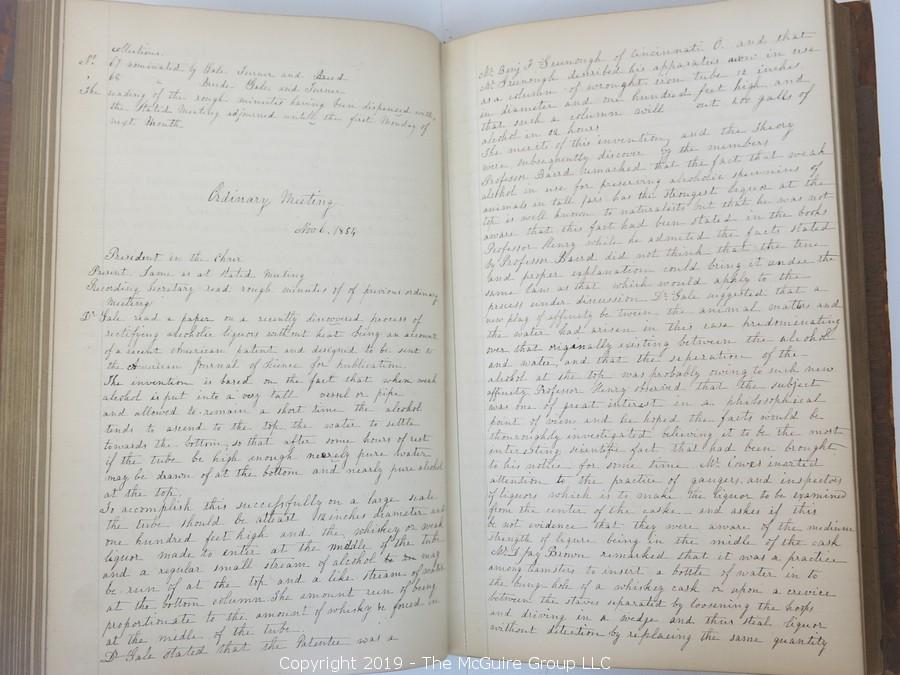 collections.
No 67 nominated by Gale Turner and Baird
" 68 " Bride Gale and Turner
The reading of the rough minutes having been dispensed with
the Stated Meeting adjourned untill the first Monday of
next Month
Ordinary Meeting
Nov 6. 1854
President in the Chair
Present. Same as at Stated Meeting
Recording Secretary read rough minutes of of previous ordinary
Meeting
Dr Gale read a paper on a recently discovered process of
rectifying alcoholic liquors without heat being an account
of a recent American patent and designed to be sent to
the American Journal of Science for publication.
The invention is bared on the fact that when weak
alcohol is put into a very tall vessel or pipe
and allowed to remain a short time the alcohol
tends to ascend to the top the water to settle
towards the bottom, so that after some hours of rest
if the tube be high enough nearely pure water
may be drawn of at the bottom and nearly pure alcohol
at the top.
To accomplish this successfully on a large scale
the tube should be atleast 12 inches diameter and
one hundred feet high and the whiskey or weak
liquor made to enter at the middle of the tube
and a regular small stream of alcohol may
be run of at the top and a like stream of water
at the bottom column. The amount run of being
proportionate to the amount of whisky be forced in
at the middle of the tube
Dr Gale stated that the Patentee was a
Mr Benj F Greenough of Cincinnati O. and that
Mr Greenough derribed his apparatus now in use
as a column of wrought iron tube 12 inches
in diameter and one hundred feet high and
that such a column will out 200 galls of
alcohol in 24 hours
The merits of this invention and the Theory
were subsequently discover by the members
Professor Baird remarked that the fact that weak
alcohol in use for preserving alcoholic specimens of
animals in tall jars has the strongest liquor at the
top is well known to naturalists but that he was not
aware that this fact had been stated in the books
Professor Henry while he admitted the facts stated
by Professor Baird did not think that the true
and proper explanation could bring it under the
same law as that which would apply to the
process under discussion Dr Gale suggested that a
new play of affinity be tween the animal matter and
the water had arisen in this case predominating
over that origanally existing between the alcohol
and water, and that the separation of the
alcohol at the top was probably owing to such new
affinity Professor Henry observed that the subject
was one of great interest in a philosophical
point of view and he hoped the facts would be
thouroughly investigated believing it to be the most
interesting scientific fact that had been brought
to his notice for some time. Mr Cower inorted
attention to the practice of gaugers and inspectors
of liquors which is to make the liquor to be examined
from the center of the caske and askes if this
be not evidence that they were aware of the medium
strength of liquere being in the midle of the cask
Mr S Jay Brown remarked that it was a practice
among teamsters to insert a bottle of water in to
the bung hole of a whiskey cask or upon a crevice
between the staves separated by loosening the hoops
and driving in a wedge and thus steal liquor
without detection by replacing the same quantity
Copyright 2019 - The McGuire Group LLC